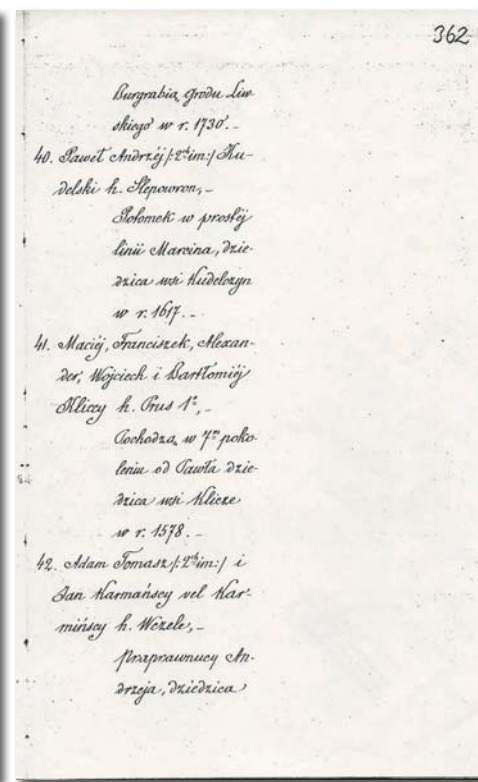 362
Burgrabią grodu Liw-
skiego w r. 1730. –
40. Paweł Andrzéj /:2ch im:/ Ku-
delski h. Ślepowron, –
Potomek w prostéj
linii Marcina, dzie-
dzica wsi Kudelczyn
w r. 1617. –
41. Maciéj, Franciszek, Alexan-
der, Wojciech i Bartłomiéj
Kliccy h. Prus 1º, –
Pochodzą w 7m poko-
leniu od Pawła dzie-
dzica wsi Klicze
w r. 1578. –
42. Adam Tomasz /:2ch im:/ i
Jan Karmańscy vel Kar-
mińscy h. Wczele, –
Praprawnucy An-
drzeja, dziedzica